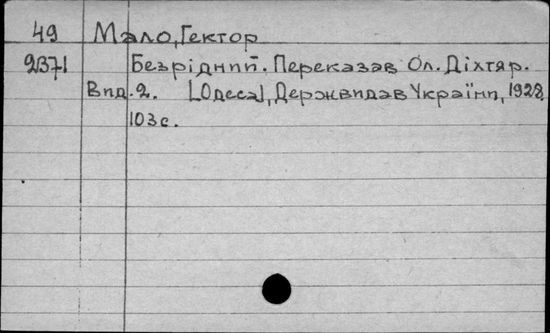 49 Мало, Гектор
2371 Безрідний. Переказав Ол. Діхтяр.
Вид. 2. [Одеса], Держвидав України, 1928,
103 с.